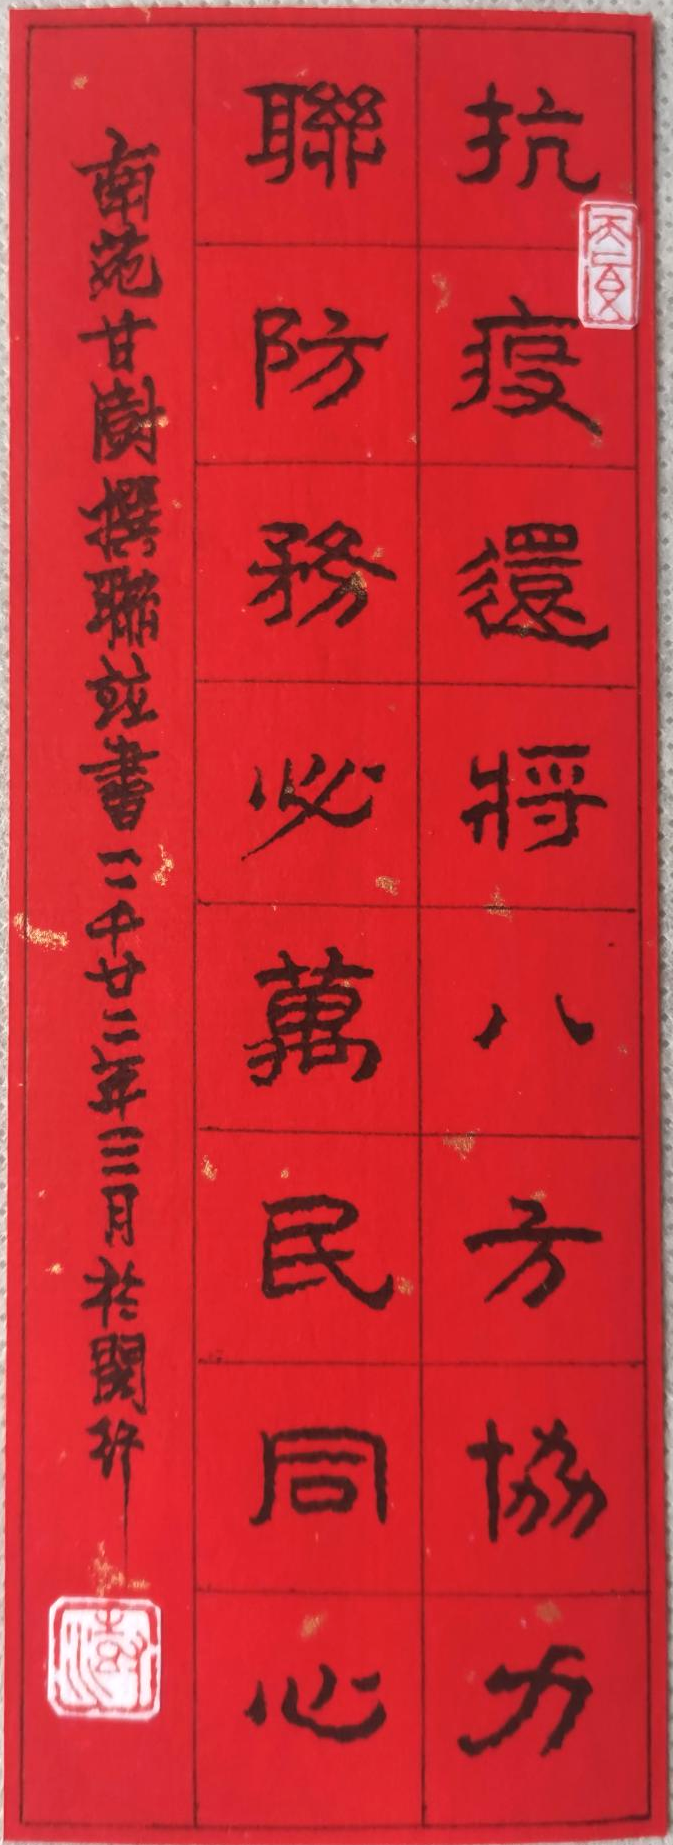 抗疫還將八方協力
聯防務必萬民同心
南苑甘澍撰聯並書二千廿二年三月於閔行
澍